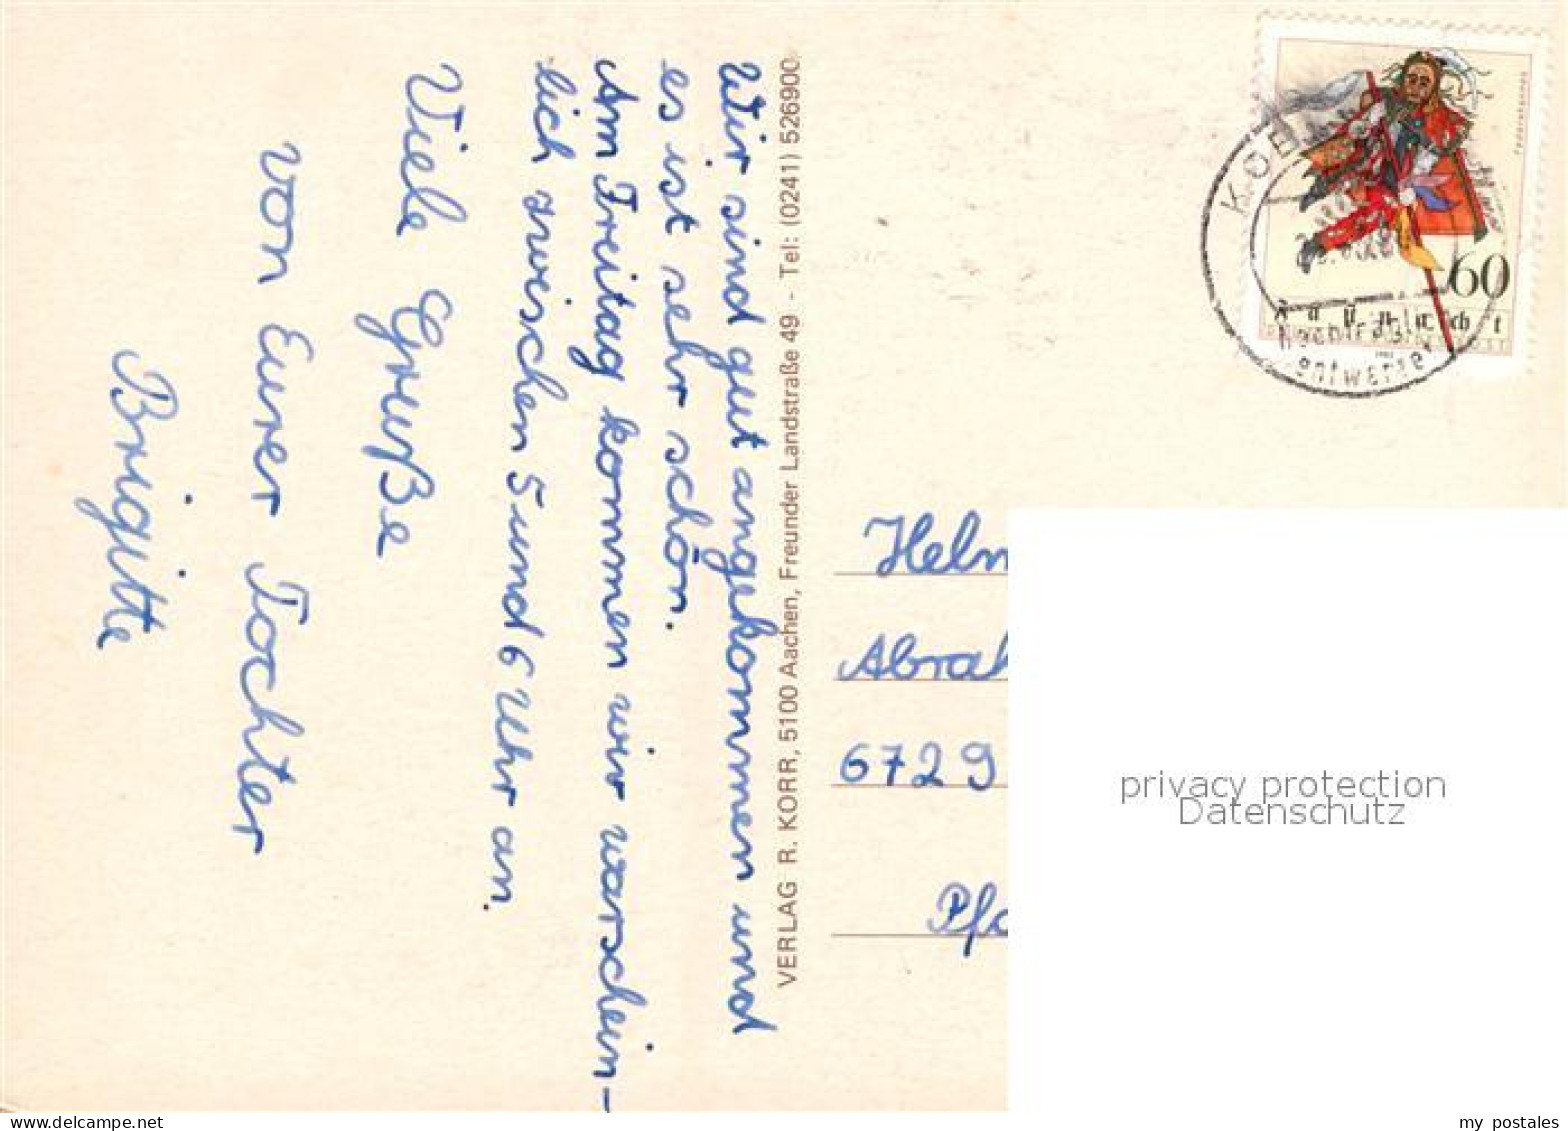 Wir sind gut angekommen und
es ist sehr schön.
Am Freitag kommen wir warschein-
lich zwischen 5 und 6 Uhr an.
Viele Grüße
von Eurer Tochter
Brigitte
VERLAG R. KORR, 5100 Aachen, Freunder Landstraße 49 - Tel: (0241) 526900
60
entwerter
6729
privacy protection
Datenschutz
my postales